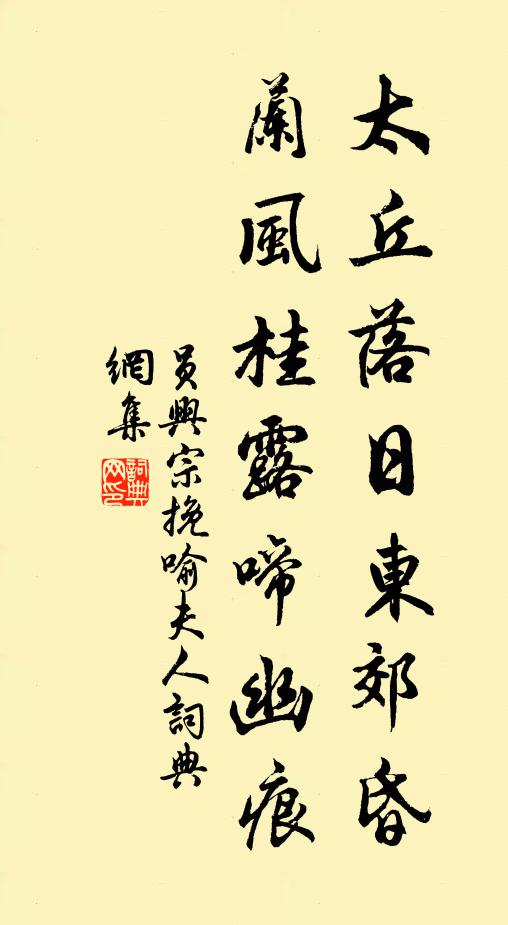 太丘落日東郊昏
蘭風桂露啼幽痕
員興宗挽喻夫人詞典
網集
詞典網印